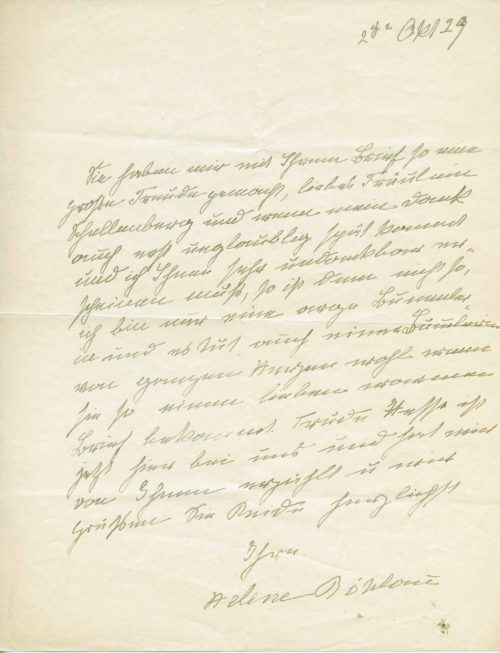 2ten Okt 29
Sie haben mir mit Ihrem Brief so eine
große Freude gemacht, liebes Fräulein
Schellenberg und wenn mein Dank
auch erst unglaublig spät kommt
und ich Ihnen sehr undankbar er-
scheinen muß, so ist dem nicht so,
ich bin nur eine arge Bummler
in und es tut auch einer Bumlerin
von ganzem Herzen wohl wenn
sie so einen lieben warmen
Brief bekommt. Trude Hesse ist
jetzt hier bei uns und hat mir
von Ihnen erzählt u wir
grüßen Sie Beide herzlichst
Ihre
Helene Böhlau